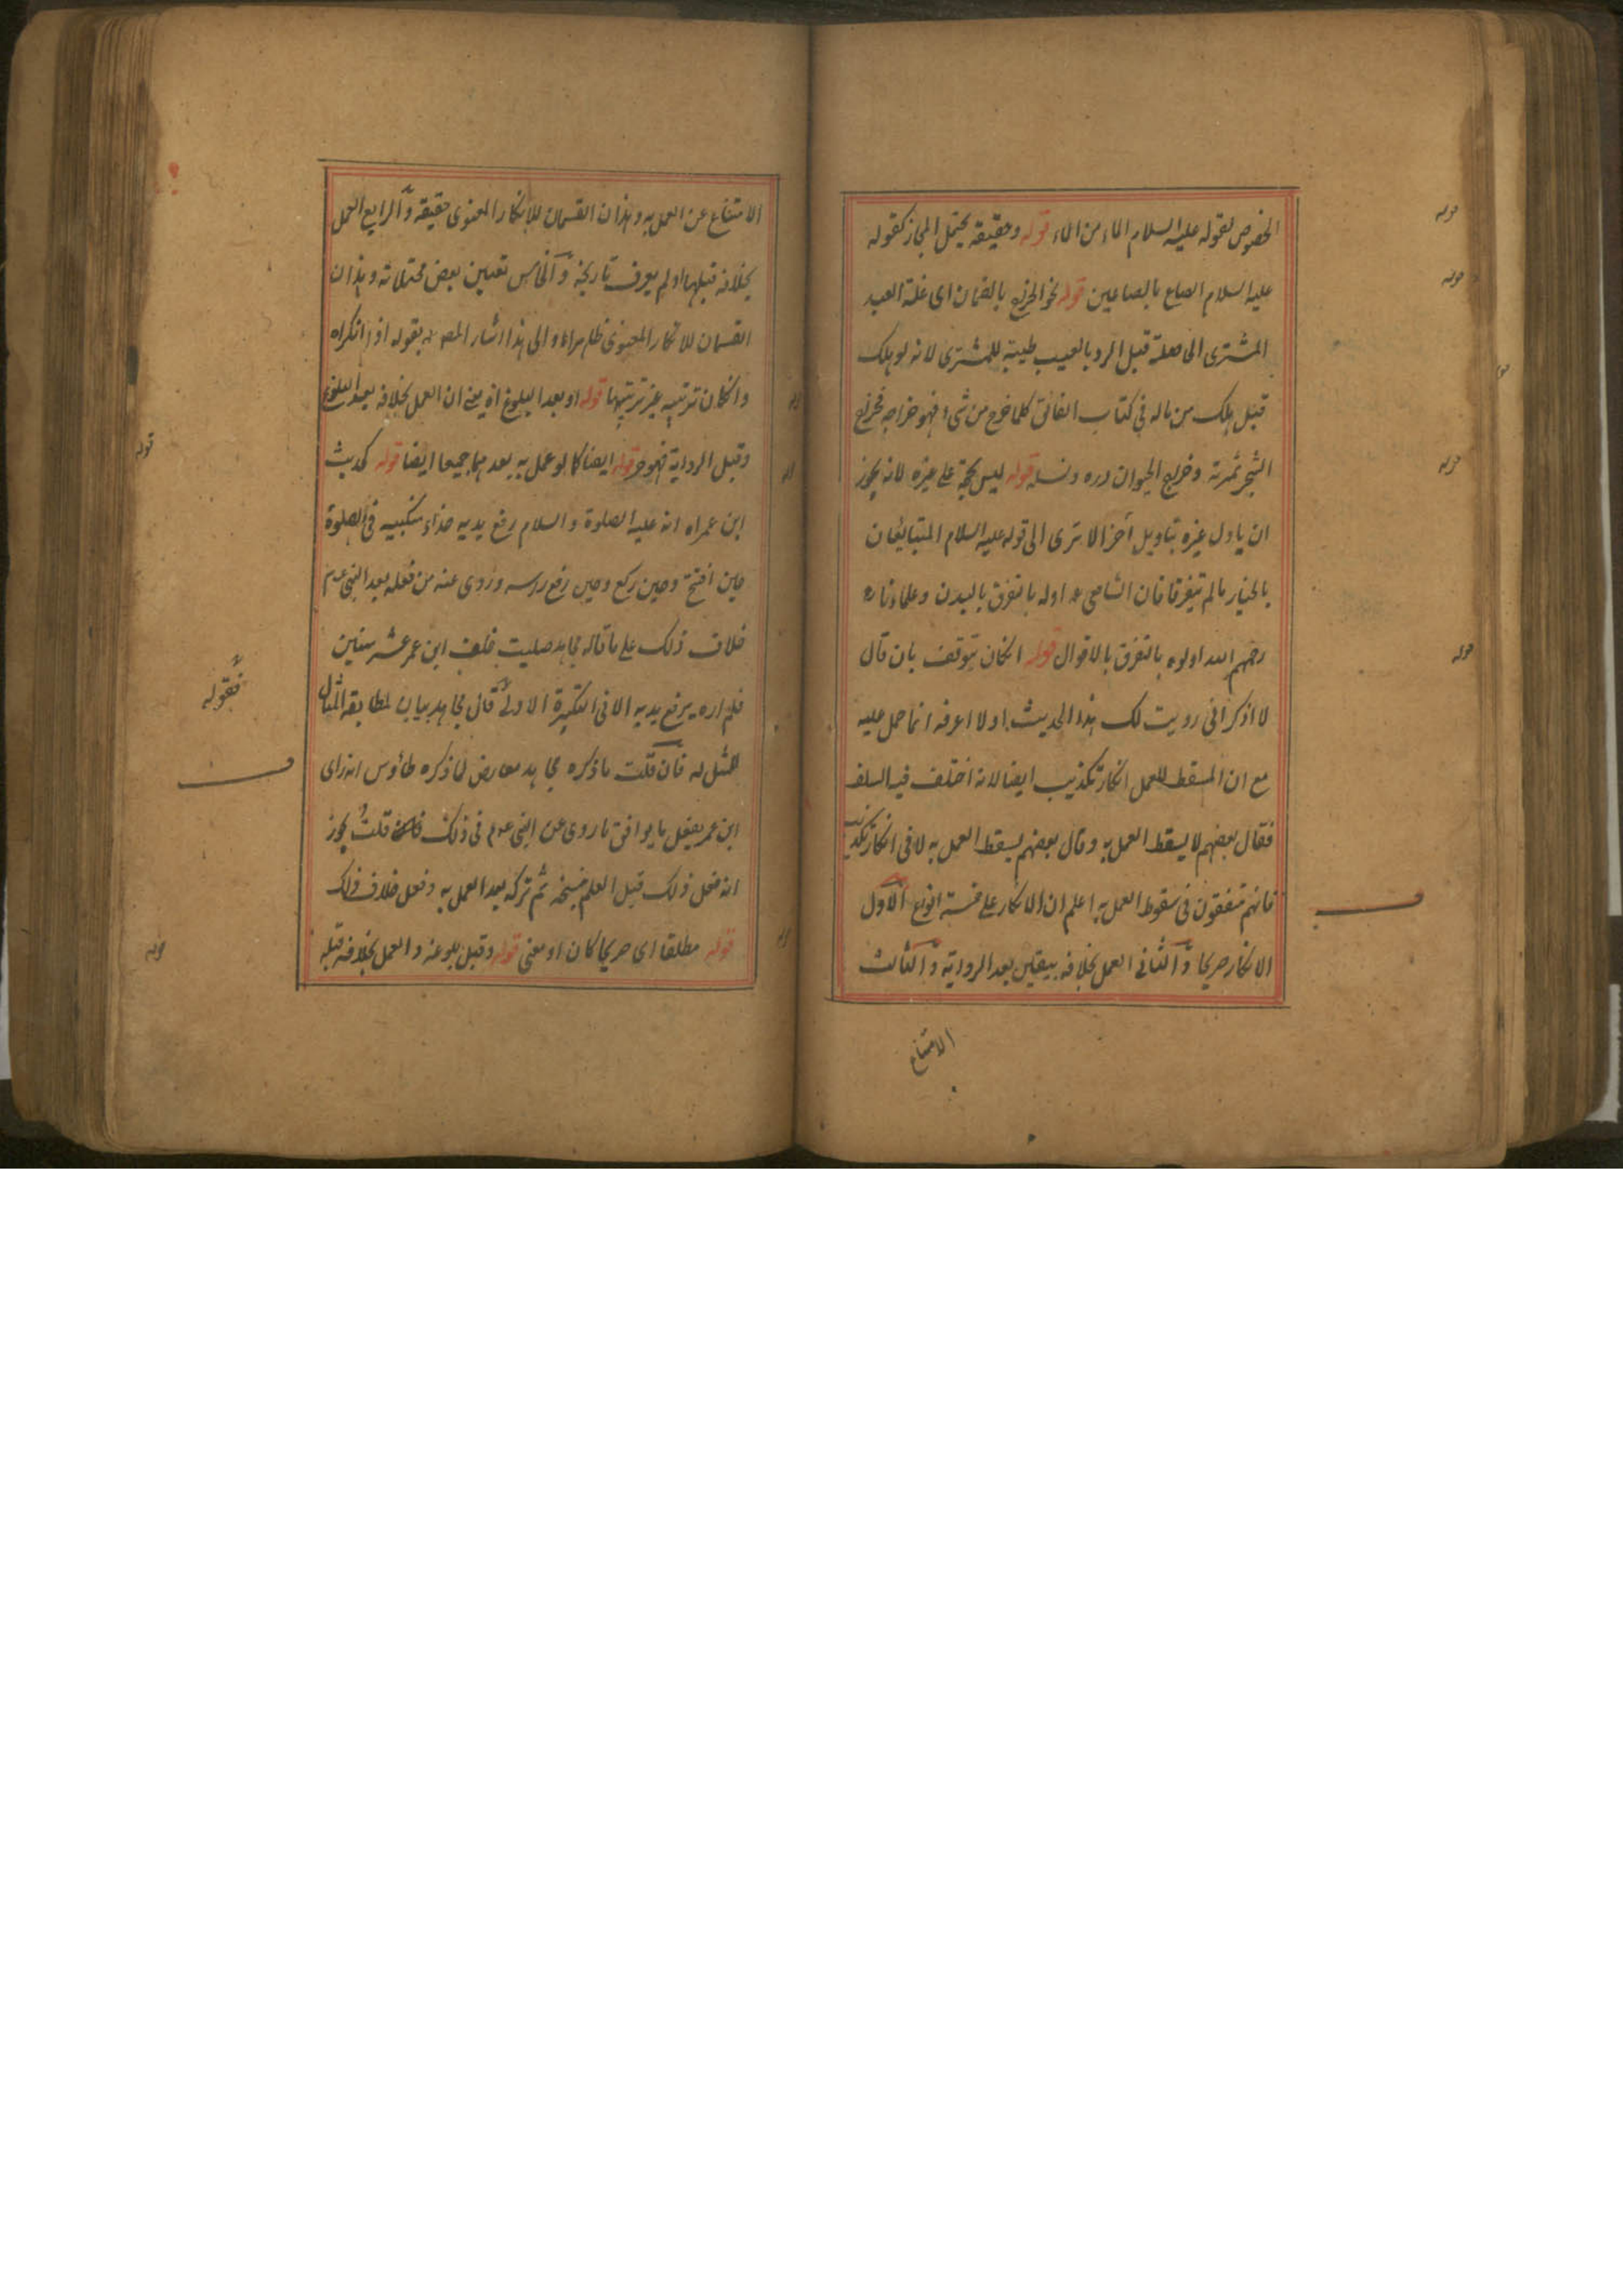 الخصوص لقوله عليه السلام الماء من الماء قوله وحقيقة يحتمل المجاز كقوله
عليه السلام الصاع بالصاعين قوله نحو الخراج بالضمان اى غلة العبد
المشترى الحاصلة قبل الرد بالعيب طيبة للمشترى لانه لو هلك
قبل هلك من ماله فى كتاب الفائق كلما خرج من شىء فهو خراجه فخراج
الشجر ثمرته وخراج الحيوان دره ونسله قوله ليس بحجة على غيره لانه يجوز
ان ياول غيره بتاويل آخر الا ترى الى قوله عليه السلام المتبايعان
بالخيار مالم يتفرقا فان الشافعى اوله بالتفرق بالبدن وعلماؤنا
رحمهم الله اولوه بالتفرق بالاقوال قوله انكان بتوقف بان قال
لا اذكر انى رويت لك هذا الحديث اولا اعرفه انما حمل عليه
مع ان المسقط للعمل انكار تكذيب ايضا لانه اختلف فيه السلف
فقال بعضهم لا يسقط العمل به وقال بعضهم يسقط العمل به لا فى انكار تكذيب
فانهم متفقون فى سقوط العمل به اعلم ان الانكار على خمسة انواع الاول
الانكار صريحا والثانى العمل بخلافه بيقين بعد الرواية والثالث
الامتناع
قوله
قوله
قوله
قوله
الامتناع عن العمل به وهذان القسمان للانكار المعنوى حقيقة والرابع العمل
بخلافه قبلها او لم يعرف تاريخه والخامس تعيين بعض محتملاته وهذان
القسمان للانكار المعنوى ظاهرا والى هذا اشار المص بقوله اذا انكراه
وانكان ترتيبه غير ترتيبها قوله او بعد البلوغ اه يعنى ان العمل بخلافه بعد البلوغ
وقبل الرواية فهو جر قوله ايضا كما لو عمل به بعدهما جميعا ايضا قوله كحديث
ابن عمر انه عليه الصلوة والسلام رفع يديه حذاء منكبيه فى الصلوة
حين افتتح وحين ركع وحين رفع راسه وروى عنه من فعله بعد النبى عم
خلاف ذلك على ما قاله مجاهد صليت خلف ابن عمر عشر سنين
فلم اره يرفع يديه الا فى التكبيرة الاولى قال مجاهد بيان لمطابقة المثال
للمثل له فان قلت ما ذكره مجاهد معارض لما ذكره طاؤس انه راى
ابن عمر يفعل ما يوافق ما روى عن النبى عم فى ذلك قلت يجوز
انه فعل ذلك قبل العلم بنسخه ثم تركه بعد العمل به وفعل خلاف ذلك
قوله مطلقا اى صريحا كان او معنى قوله وقبل بلوغه والعمل بخلافه قبله
قوله
فقوله
قوله